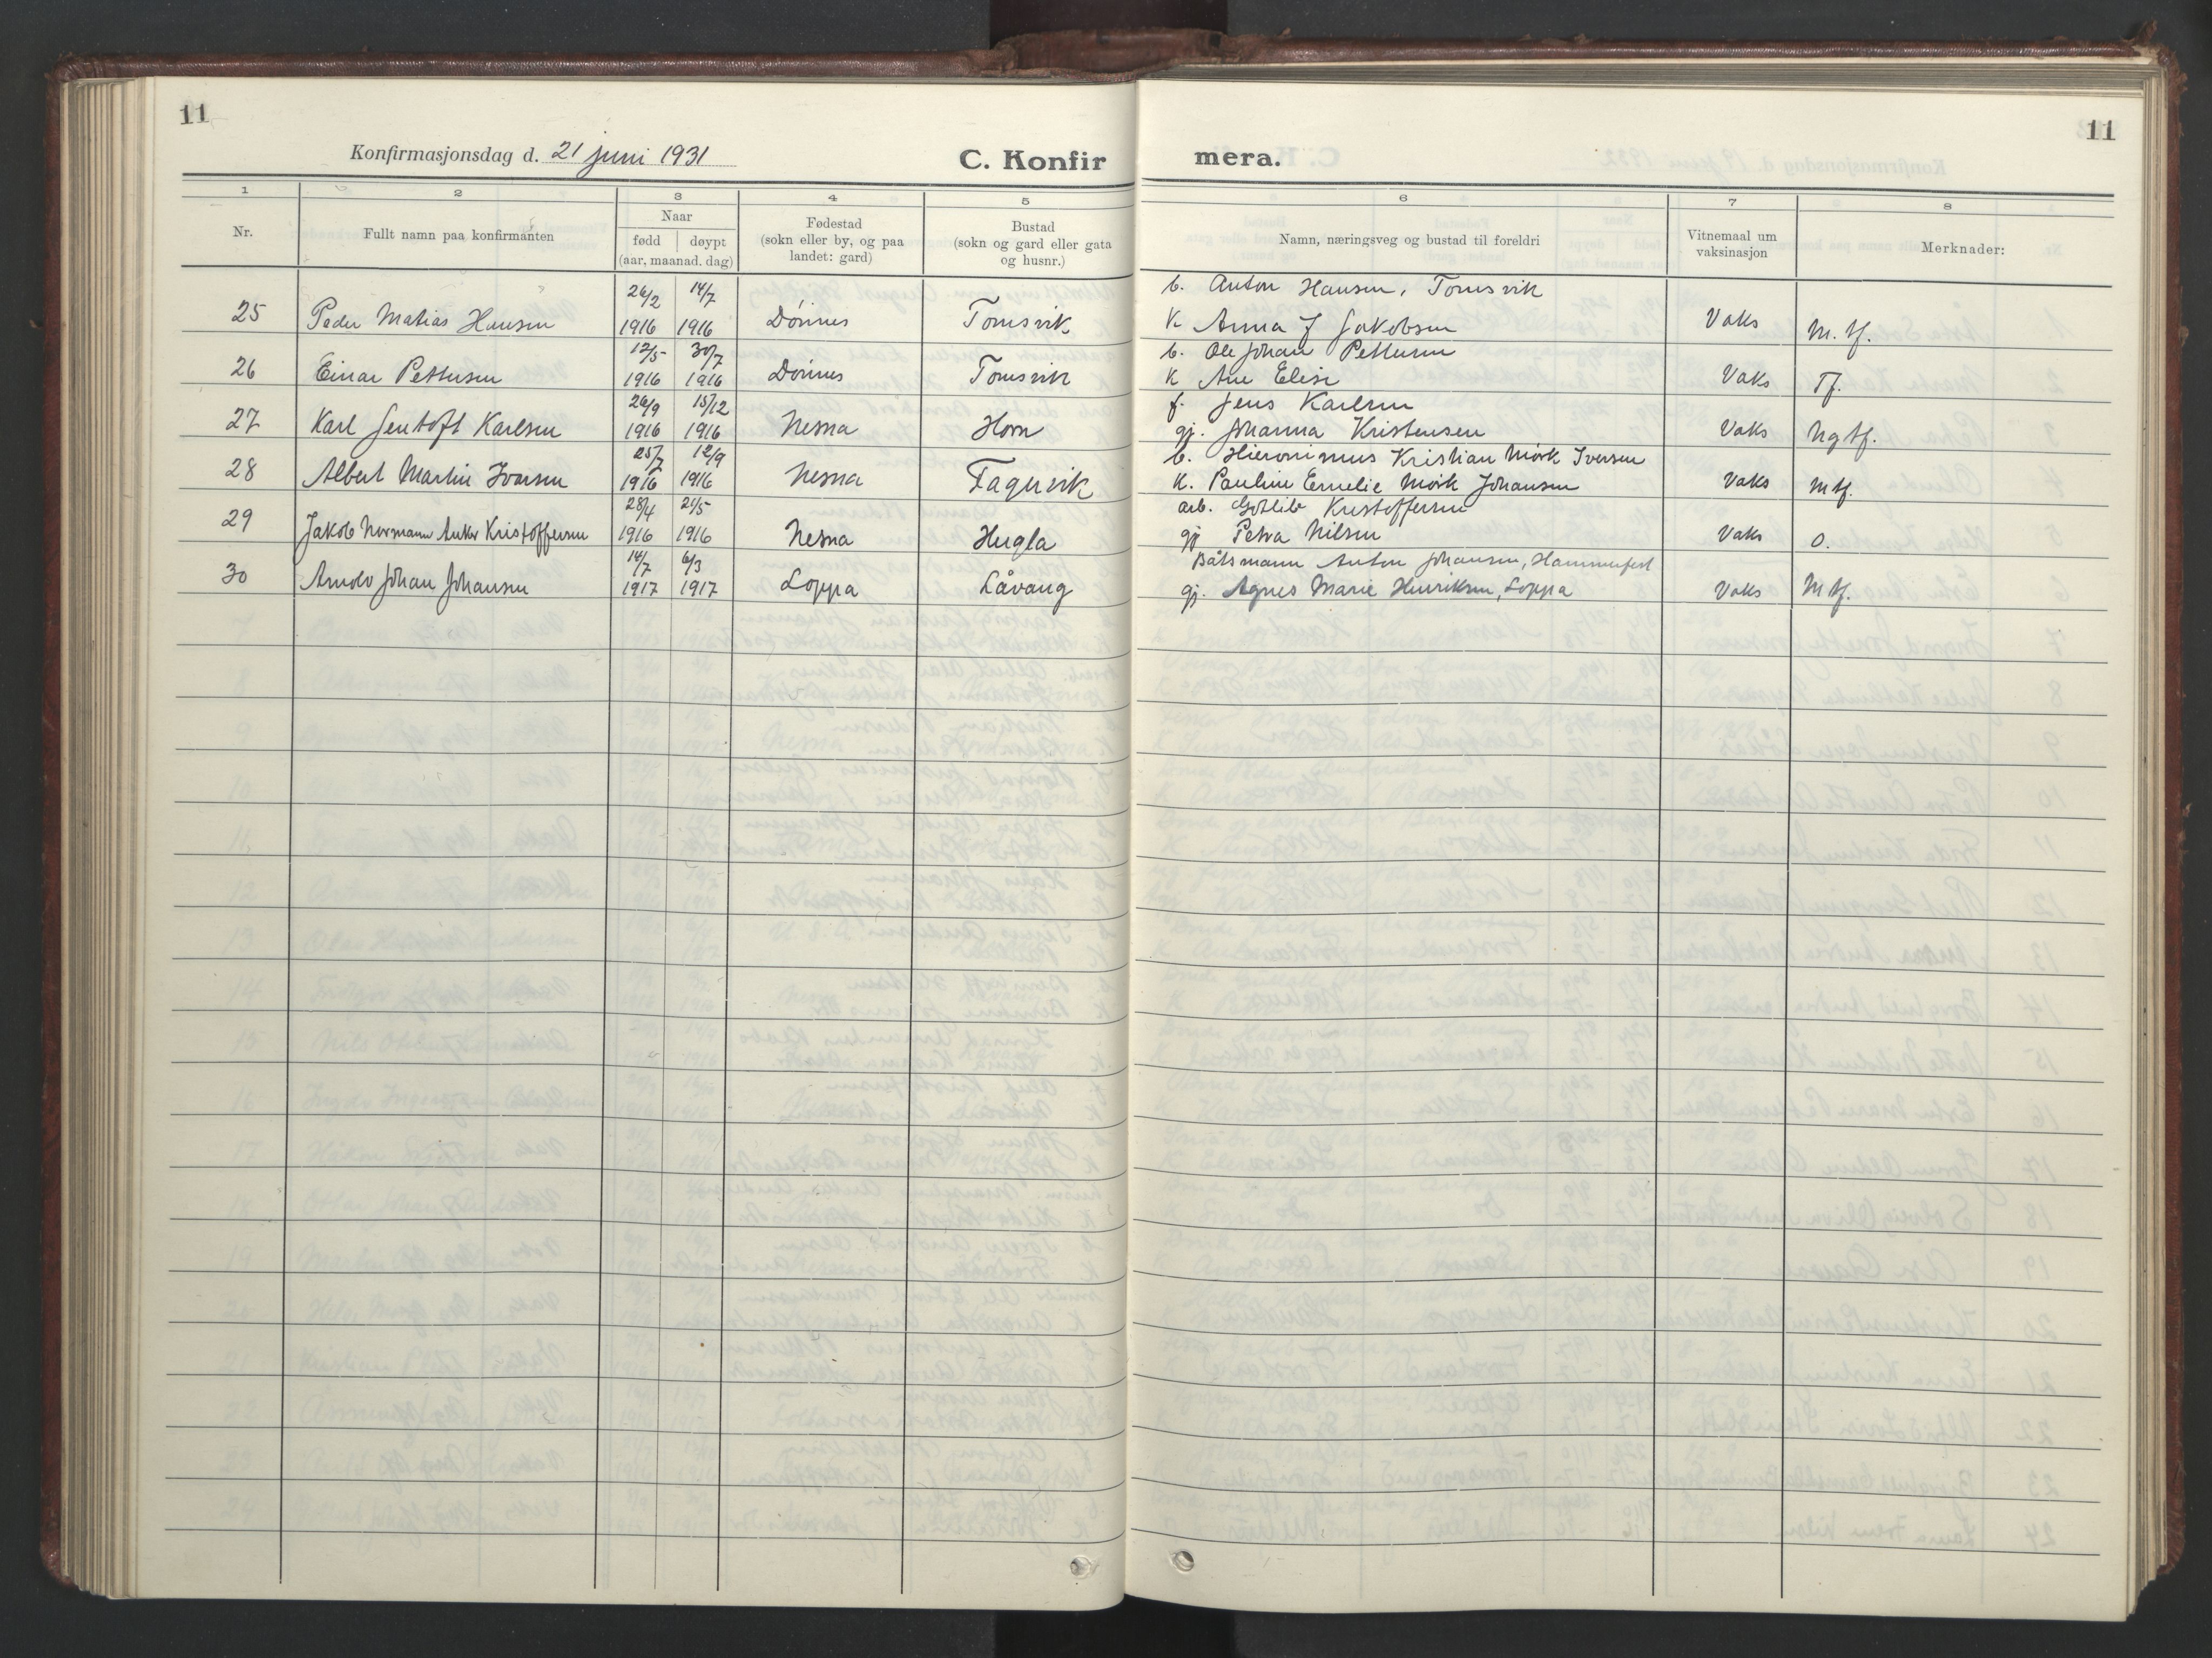 11
11
Konfirmasjonsdag d. 21 juni 1931
C. Konfir mera.
1 2 3 4 5 6 7 8
Nr.
Fullt namn paa konfirmanten
Naar
fødd døypt
(aar, maanad. dag)
Fødestad
(sokn eller by, og paa
landet: gard)
Bustad
(sokn og gard eller gata
og husnr.)
Namn, næringsveg og bustad til foreldri
Vitnemaal um
vaksinasjon
Merknader:
26/2 14/7 b. Anton Hansen, Tomsvik
25 Peder Matias Hansen 1916 1916 Dönnes Tomsvik K Anna J Jakobsen Vaks M. tf.
12/5 30/7 b. Ole Johan Pettersen
26 Einar Pettersen 1916 1916 Dönnes Tomsvik K Ane Elise Vaks Tf.
26/9 15/12 f. Jens Karlsen
27 Karl Jentoft Karlsen 1916 1916 Nesna Horn gj. Johanna Kristensen Vaks Ng tf.
25/7 12/9 b. Hieronimus Kristian Mörk Iversen
28 Albert Martin Iversen 1916 1916 Nesna Fagervik K. Pauline Emelie Mörk Johansen Vaks M tf.
28/4 21/5 arb. Gotlib Kristoffersen
29 Jakob Normann Anker Kristoffersen 1916 1916 Nesna Hugla gj Petra Nilsen Vaks O.
14/7 6/3 Båtsmann Anton Johansen, Hammerfest
30 Arnolv Johan Johansen 1917 1917 Loppa Låvang gj. Agnes Marie Henriksen, Loppa Vaks M tf.